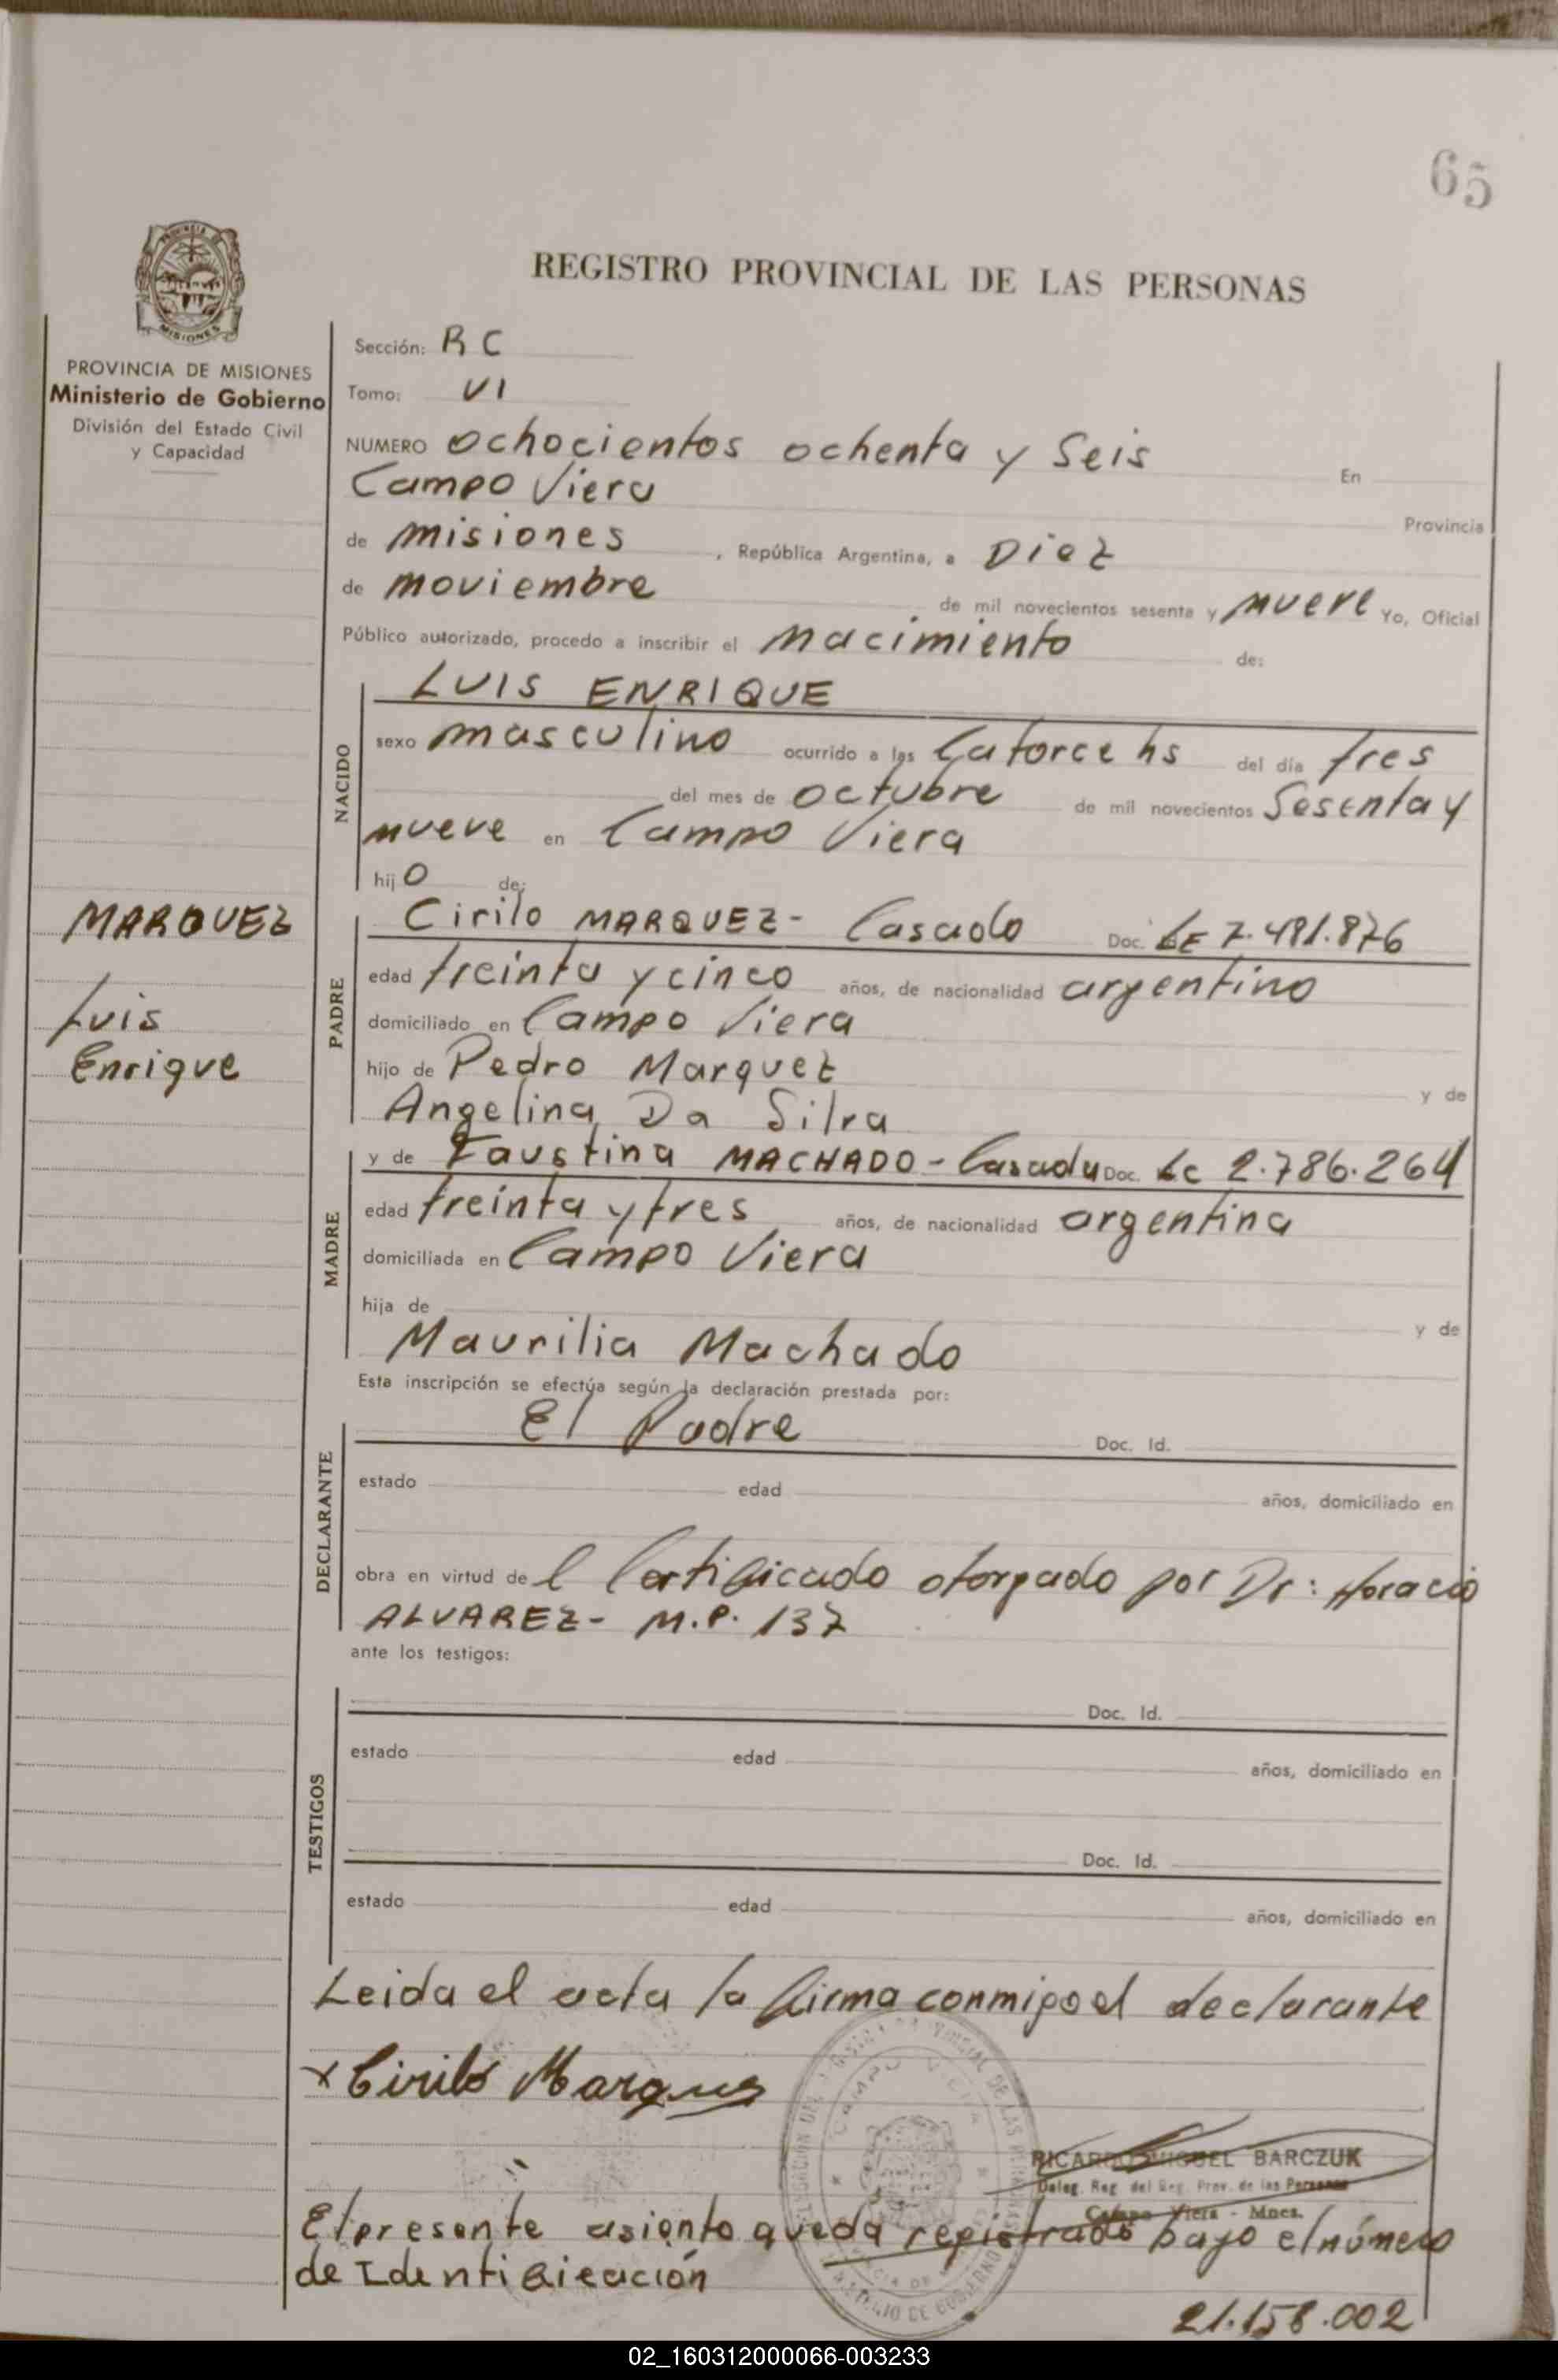 65
REGISTRO PROVINCIAL DE LAS PERSONAS
MISIONES
PROVINCIA DE MISIONES
Ministerio de Gobierno
División del Estado Civil
y Capacidad
Sección: RC
Tomo: VI
NUMERO ochocientos ochenta y Seis En
Campo Viera Provincia
de misiones, República Argentina, a Diez
de noviembre de mil novecientos sesenta y nueve Yo, Oficial
Público autorizado, procedo a inscribir el nacimiento de:
NACIDO
LUIS ENRIQUE
sexo masculino ocurrido a las Catorce hs del día tres
del mes de octubre de mil novecientos Sesenta y
nueve en Campo Viera
hijo de:
MARQUEZ
Luis
Enrique
PADRE
Cirilo MARQUEZ- Casado Doc. LE 7.481.876
edad treinta y cinco años, de nacionalidad argentino
domiciliado en Campo Viera
hijo de Pedro Marquez y de
Angelina Da Silva
MADRE
y de Faustina MACHADO - Casada Doc. LC 2.786.264
edad treinta y tres años, de nacionalidad argentina
domiciliada en Campo Viera
hija de y de
Maurilia Machado
Esta inscripción se efectúa según la declaración prestada por:
DECLARANTE
El Padre Doc. Id.
estado edad años, domiciliado en
obra en virtud de l Certificado otorgado por Dr: Horacio
ALVAREZ- M.P. 137
ante los testigos:
TESTIGOS
Doc. Id.
estado edad años, domiciliado en
Doc. Id.
estado edad años, domiciliado en
Leida el acta la firma conmigo el declarante
x Cirilo Marques
RICARDO MIGUEL BARCZUK
Deleg. Reg. del Reg. Prov. de las Personas
Campo Viera - Mnes.
El presente asiento queda registrado bajo el número
de Identificación
21.158.002
02_160312000066-003233